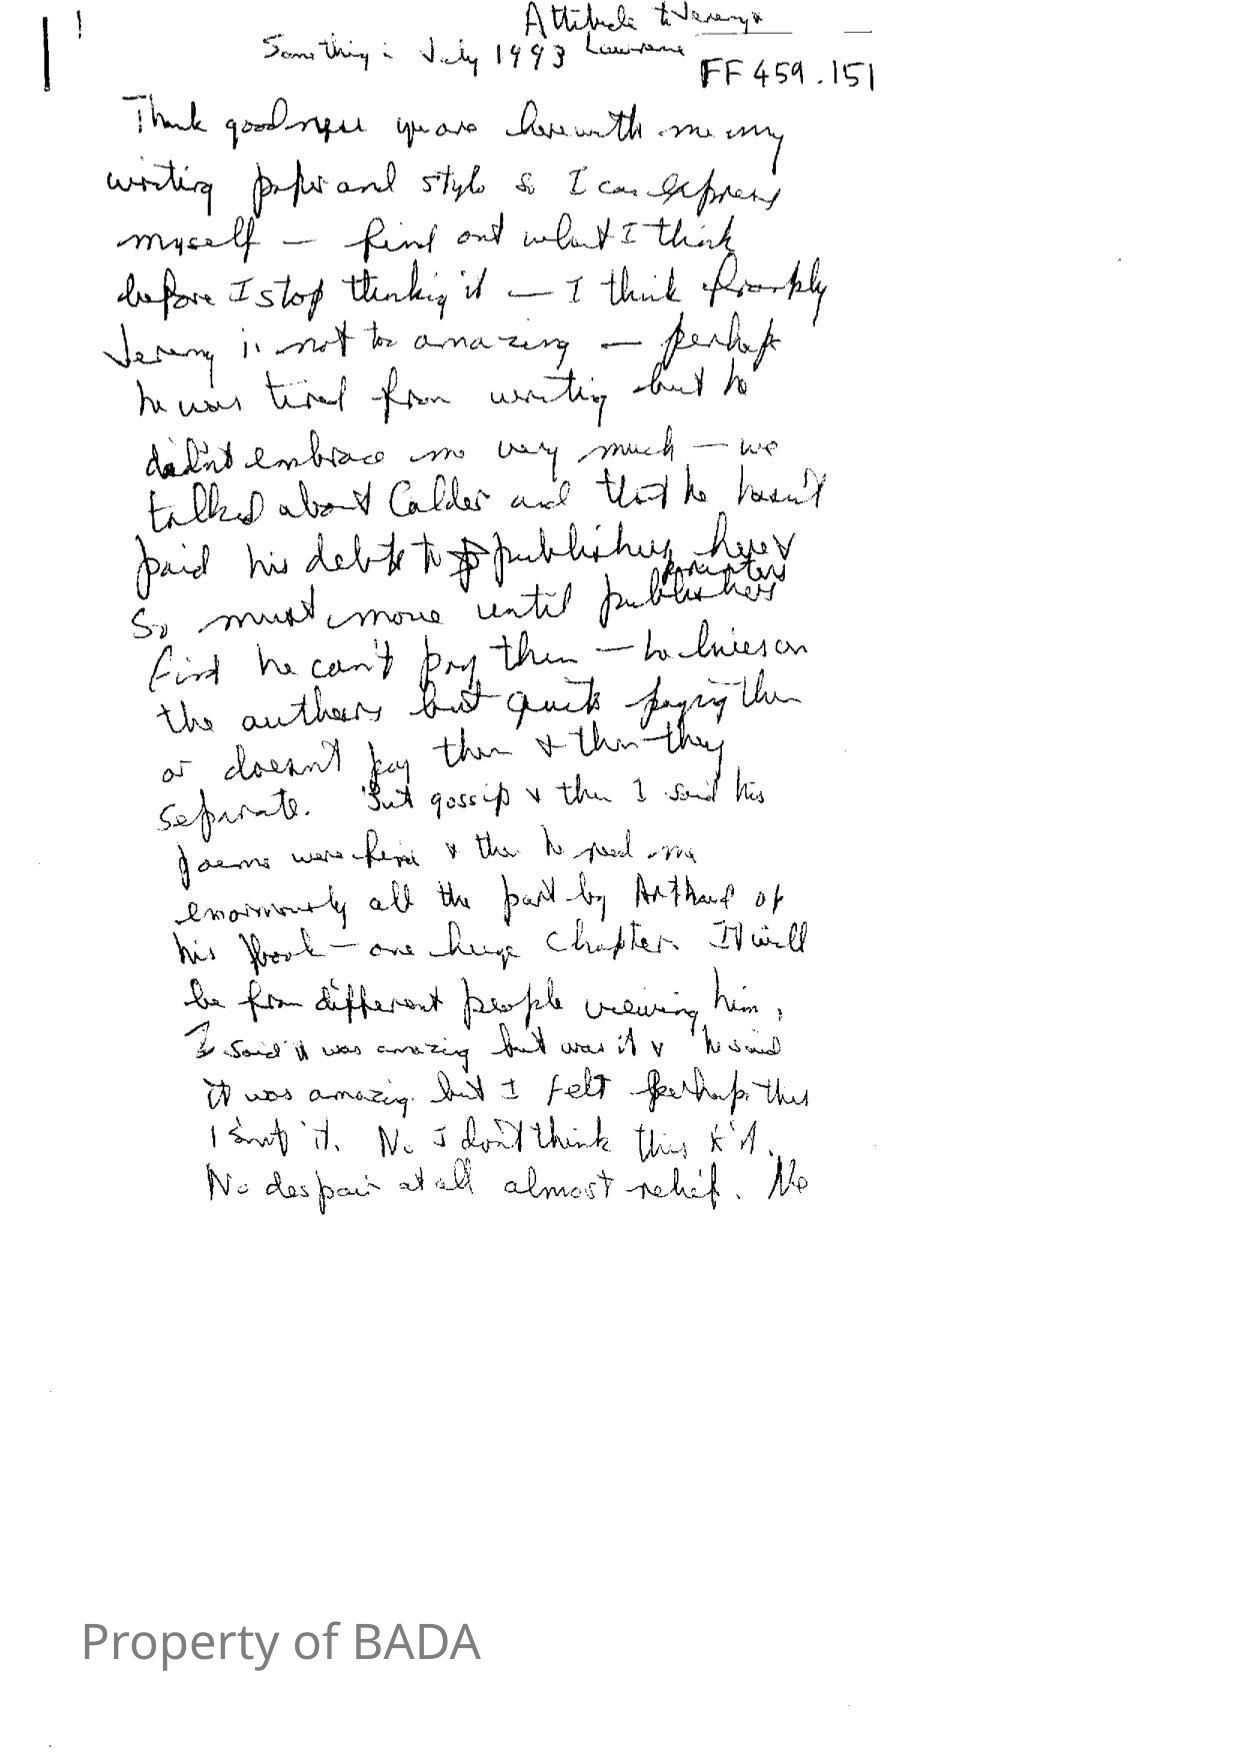 Attitude to Jeremy &
Something in July 1993 Lawrence
FF 459.151
Thank goodness you are here with me my
writing paper and style so I can express
myself — find out what I think
before I stop thinking it — I think frankly
Jeremy is not too amazing — perhaps
he was tired from writing but he
didn't embrace me very much — we
talked about Calder and that he hasn't
paid his debts to publishers here &
printers
so must move until publishers
find he can't pay them — he lives on
the authors but quits paying them
or doesn't pay them & then they
separate. But gossip & then I said his
poems were fine & then he read me
enormously all the part by Arthaud of
his book — one huge chapter. It will
be from different people viewing him,
I said it was amazing but was it & he said
it was amazing but I felt perhaps this
isn't it. No I don't think this is it.
No despair at all almost relief. No
Property of BADA